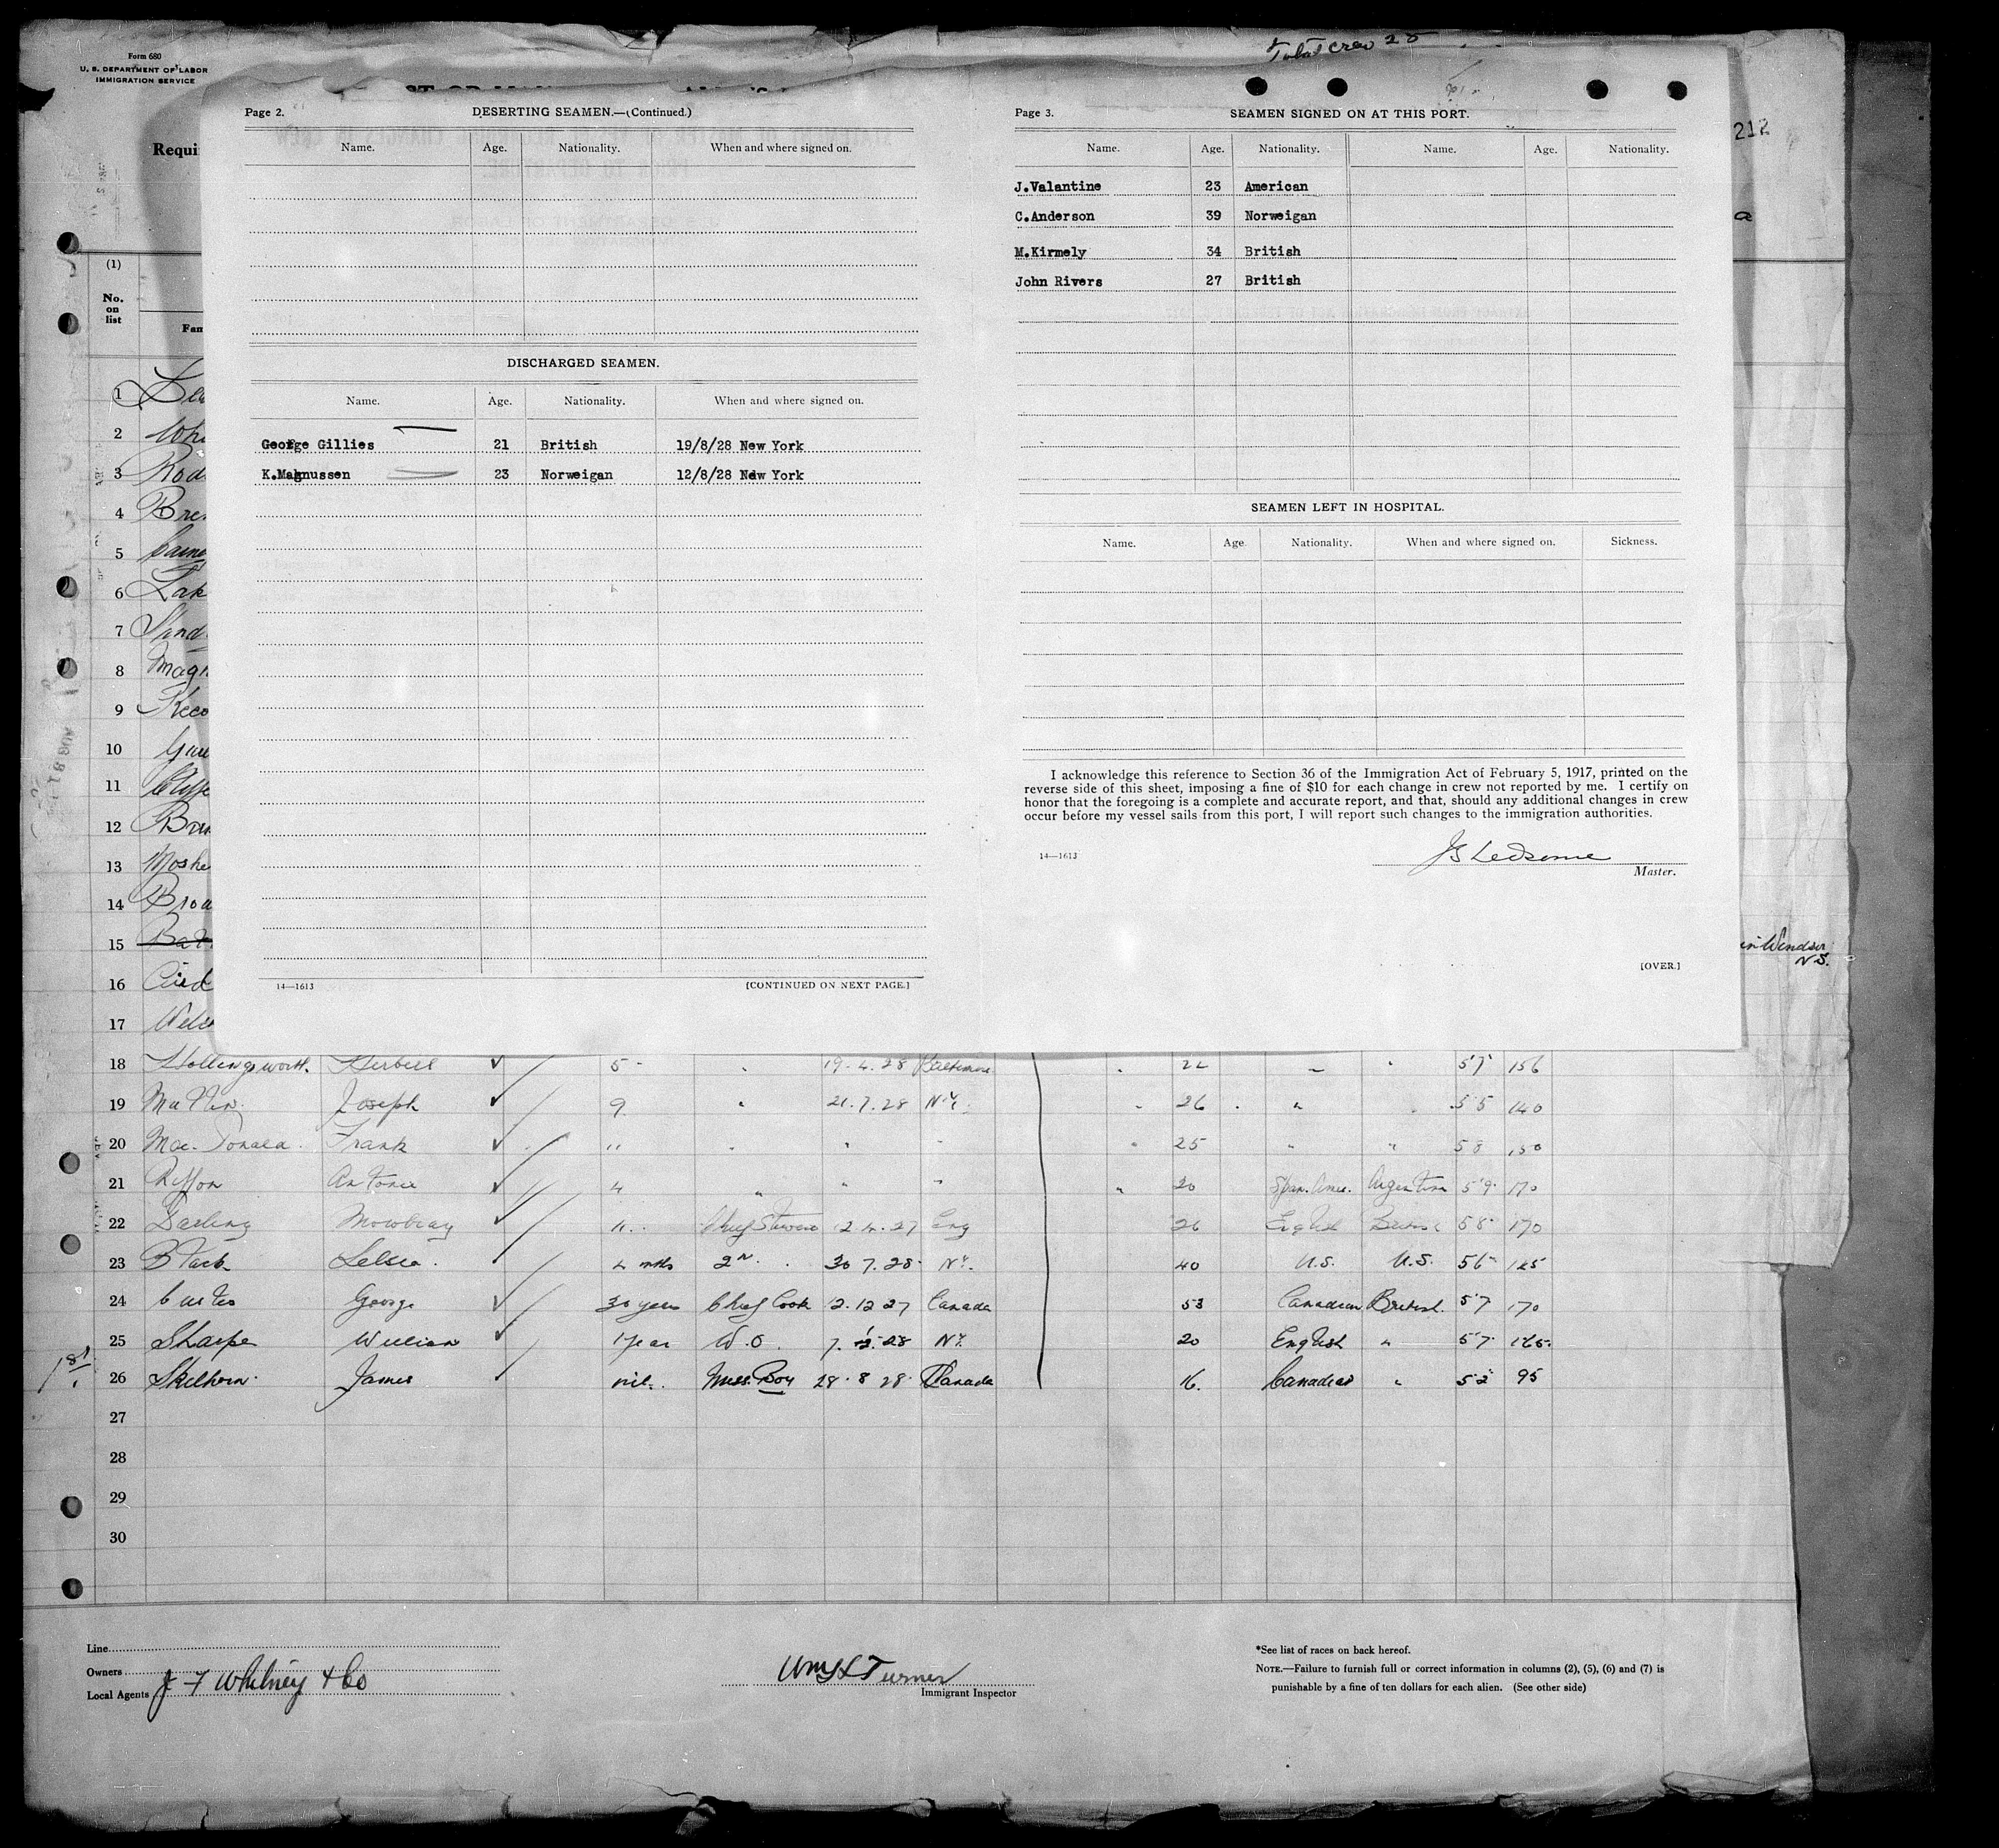 Total Crew 25
Form 680
U. S. DEPARTMENT OF LABOR
IMMIGRATION SERVICE
212
Page 2.
DESERTING SEAMEN.—(Continued.)
Name. Age. Nationality. When and where signed on.
DISCHARGED SEAMEN.
Name. Age. Nationality. When and where signed on.
George Gillies 21 British 19/8/28 New York
K.Magnussen 23 Norweigan 12/8/28 New York
14—1613
[CONTINUED ON NEXT PAGE.]
Page 3.
SEAMEN SIGNED ON AT THIS PORT.
Name. Age. Nationality. Name. Age. Nationality.
J.Valantine 23 American
C.Anderson 39 Norweigan
M.Kirmely 34 British
John Rivers 27 British
SEAMEN LEFT IN HOSPITAL.
Name. Age Nationality. When and where signed on. Sickness.
I acknowledge this reference to Section 36 of the Immigration Act of February 5, 1917, printed on the
reverse side of this sheet, imposing a fine of $10 for each change in crew not reported by me. I certify on
honor that the foregoing is a complete and accurate report, and that, should any additional changes in crew
occur before my vessel sails from this port, I will report such changes to the immigration authorities.
14—1613
J S Ledsome
Master.
[OVER.]
Requi
(1)
No.
on
list
Fam
1
2 Whi
3 Rod
4 Bre
5
6 Lak
7 Sand
8 Magn
9
10
11
12
13 Moshe
14 Brow
15
16
17
Windsor
N.S.
18 Hollingsworth. Herbert 5 19.4.28 Baltimore 22 " " 5'7 156
19 Joseph 9 " 21.7.28 N.Y. " 26 " " 5'5 140
20 Frank 11 " " " " 25 " " 5 8 150
21 4 " " " " 20 Span. Amer. Argentina 5'9 170
22 Darling Mowbray 11 Chief Steward 12.4.27 Eng 26 English British 5 8 170
23 4 mths 2nd 30 7.28 N.Y. 40 U.S. U.S. 5 6
24 George 30 years Chief Cook 12.12 27 Canada 53 Canadian British. 5'7 170
25 Sharpe William 1 year W.O. 28 N.Y. 20 English " 5'7 165
1st
26 Skelhorn James nil. Mess. Boy 28.8 28 Canada 16. Canadian " 5'2 95
27
28
29
30
Line
Owners
Local Agents J F Whitney & Co
Wm L Turner
Immigrant Inspector
*See list of races on back hereof.
NOTE.—Failure to furnish full or correct information in columns (2), (5), (6) and (7) is
punishable by a fine of ten dollars for each alien. (See other side)